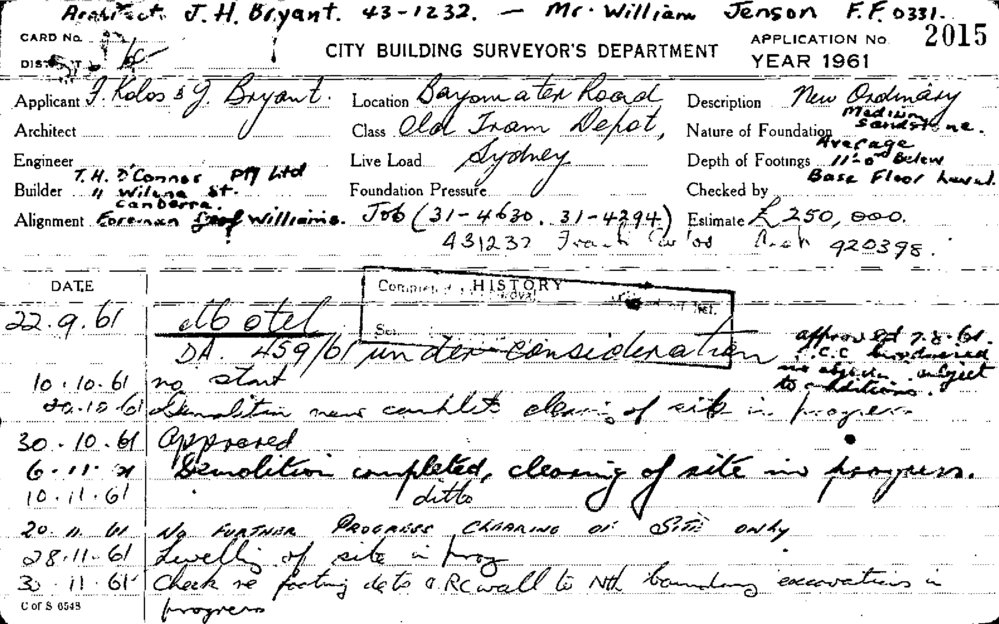 Architect J. H. Bryant. 43-1232. — Mr. William Jenson F.F. 0331.
CARD No.
CITY BUILDING SURVEYOR'S DEPARTMENT
APPLICATION No. 2015
YEAR 1961
Applicant F. Kolos & J. Bryant.
Location Bayswater Road
Description New Ordinary
Architect
Class Old Tram Depot,
Nature of Foundation Medium Sandstone.
Engineer
Live Load Sydney
Depth of Footings Average 11'0" Below Base Floor Level.
Builder T. H. O'Connor Pty Ltd
" Wiluna St. Canberra.
Foundation Pressure
Checked by
Alignment Foreman Geof Williams.
Job (31-4630. 31-4294)
Estimate £250,000.
431232 Frank Arch 920398.
DATE
HISTORY
22.9.61 Motel
DA. 459/61 under consideration
approved 7.8.61.
no objection subject
to conditions.
10.10.61 no start
20.10.61 Demolition near complete clearing of site in progress
30.10.61 Approved
6.11.61 Demolition completed, clearing of site in progress.
10.11.61 ditto
20.11.61 No FURTHER PROGRESS CLEARING OF SITE ONLY
28.11.61 Levelling of site in prog
30.11.61 Check re footing dets a RC wall to Nth boundary excavations in
progress
C of S 6548